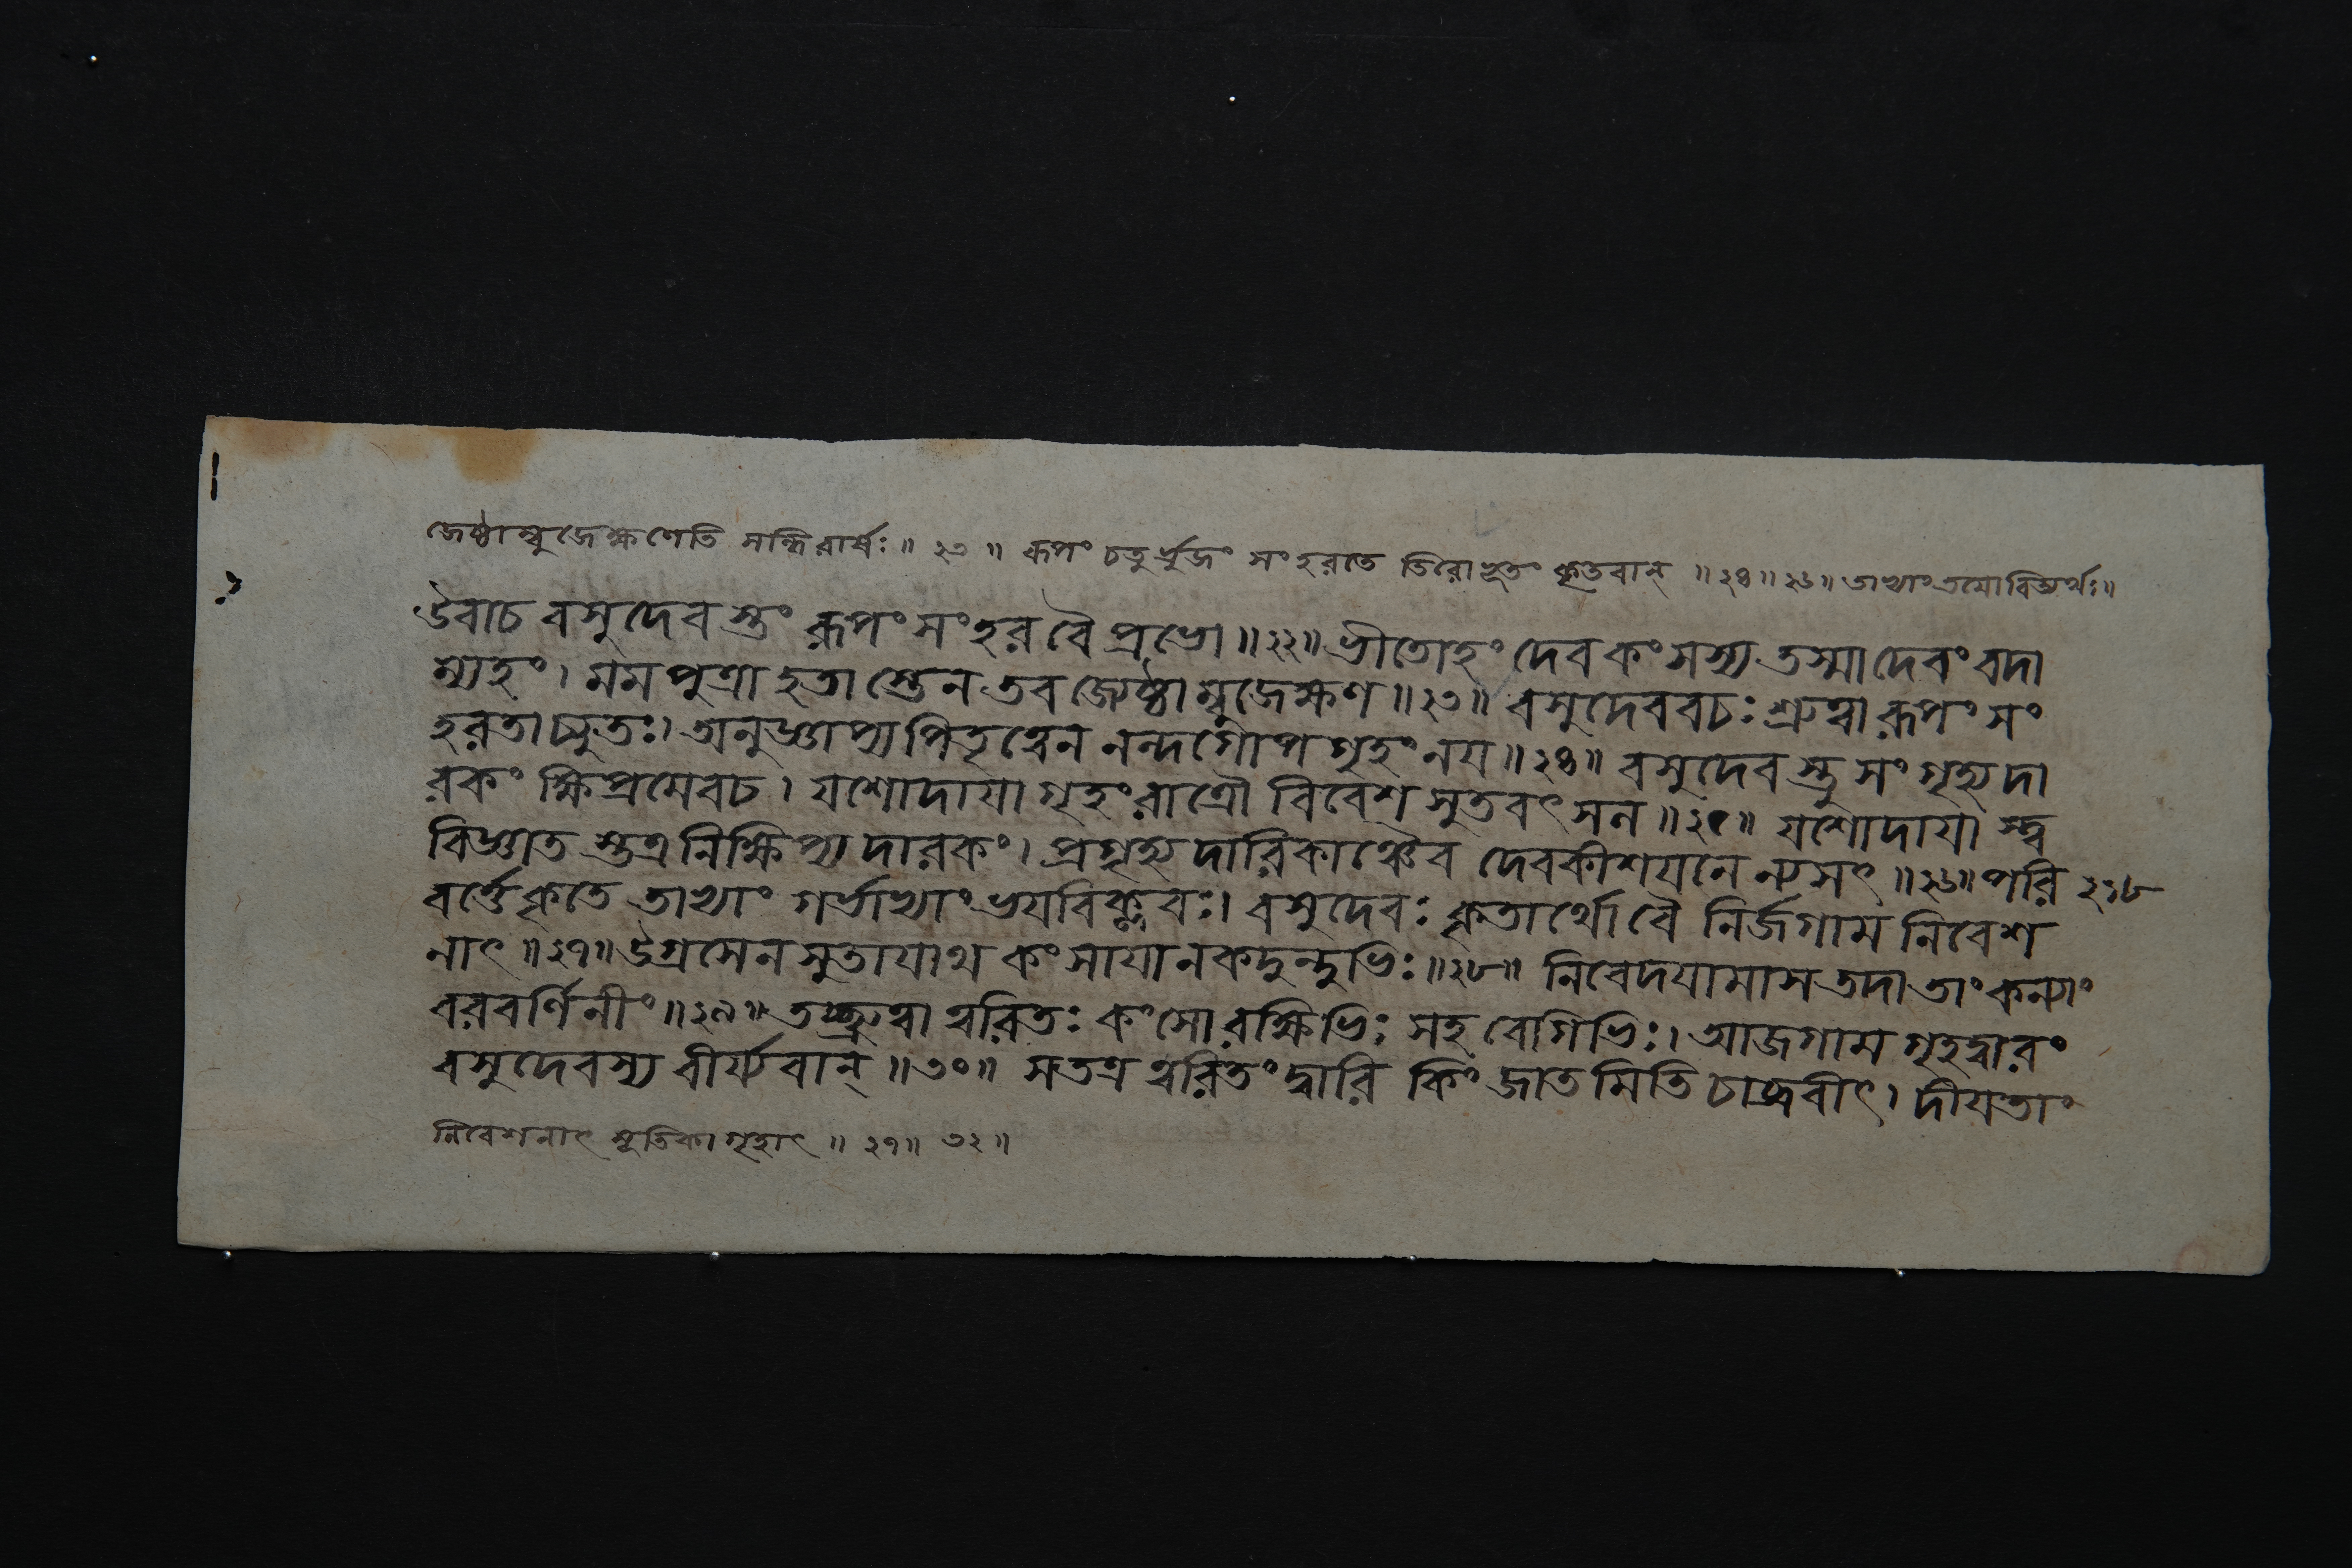 জেষ্ঠাম্বুজেক্ষণেতি সন্ধিরার্ষঃ॥ ২৩ ॥ রূপং চতুর্ভুজং সংহরতে তিরোভূতং কৃতবান্ ॥২৪॥২৬॥ তাভ্যাং তয়োরিত্যর্থঃ॥
উবাচ বসুদেবস্তুং রূপং সংহর বৈ প্রভো॥২২॥ ভীতোহং দেব কংসস্য তস্মাদেবং বদা
ম্যহং। মম পুত্রা হতাস্তেন তব জ্যেষ্ঠাম্বুজেক্ষণ॥২৩॥ বসুদেববচঃ শ্রুত্বা রূপং সং
হরতাচ্যুতঃ। অনুজ্ঞাপ্য পিতৃত্বেন নন্দগোপগৃহং নয॥২৪॥ বসুদেবস্তু সংগৃহ্য দা
রকং ক্ষিপ্রমেবচ। যশোদাযা গৃহং রাত্রৌ বিবেশ সুতবৎসল॥২৫॥ যশোদাযাস্ত্ব
বিজ্ঞাতস্তত্র নিক্ষিপ্য দারকং। প্রগৃহ্য দারিকাঞ্চৈব দেবকীশযনে ন্যসৎ॥২৬॥ পরি ২১৮
বর্ত্তে কৃতে তাভ্যাং গর্ভাভ্যাং ভযবিক্লবঃ। বসুদেবঃ কৃতার্থো বৈ নির্জগাম নিবেশ
নাৎ॥২৭॥ উগ্রসেনসুতাযাথ কংসাযানকদুন্দুভিঃ॥২৮॥ নিবেদযামাস তদা তাং কন্যাং
বরবর্ণিনীং॥২৯॥ তচ্ছ্রুত্বা ত্বরিতঃ কংসো রক্ষিভিঃ সহ বেগিভিঃ। আজগাম গৃহদ্বারং
বসুদেবস্য বীর্য্যবান্॥৩০॥ স তত্র ত্বরিতং দ্বারি কিং জাতমিতি চাব্রবীৎ। দীযতাং
নিবেশনাৎ সূতিকাগৃহাৎ ॥ ২৭॥ ৩২॥